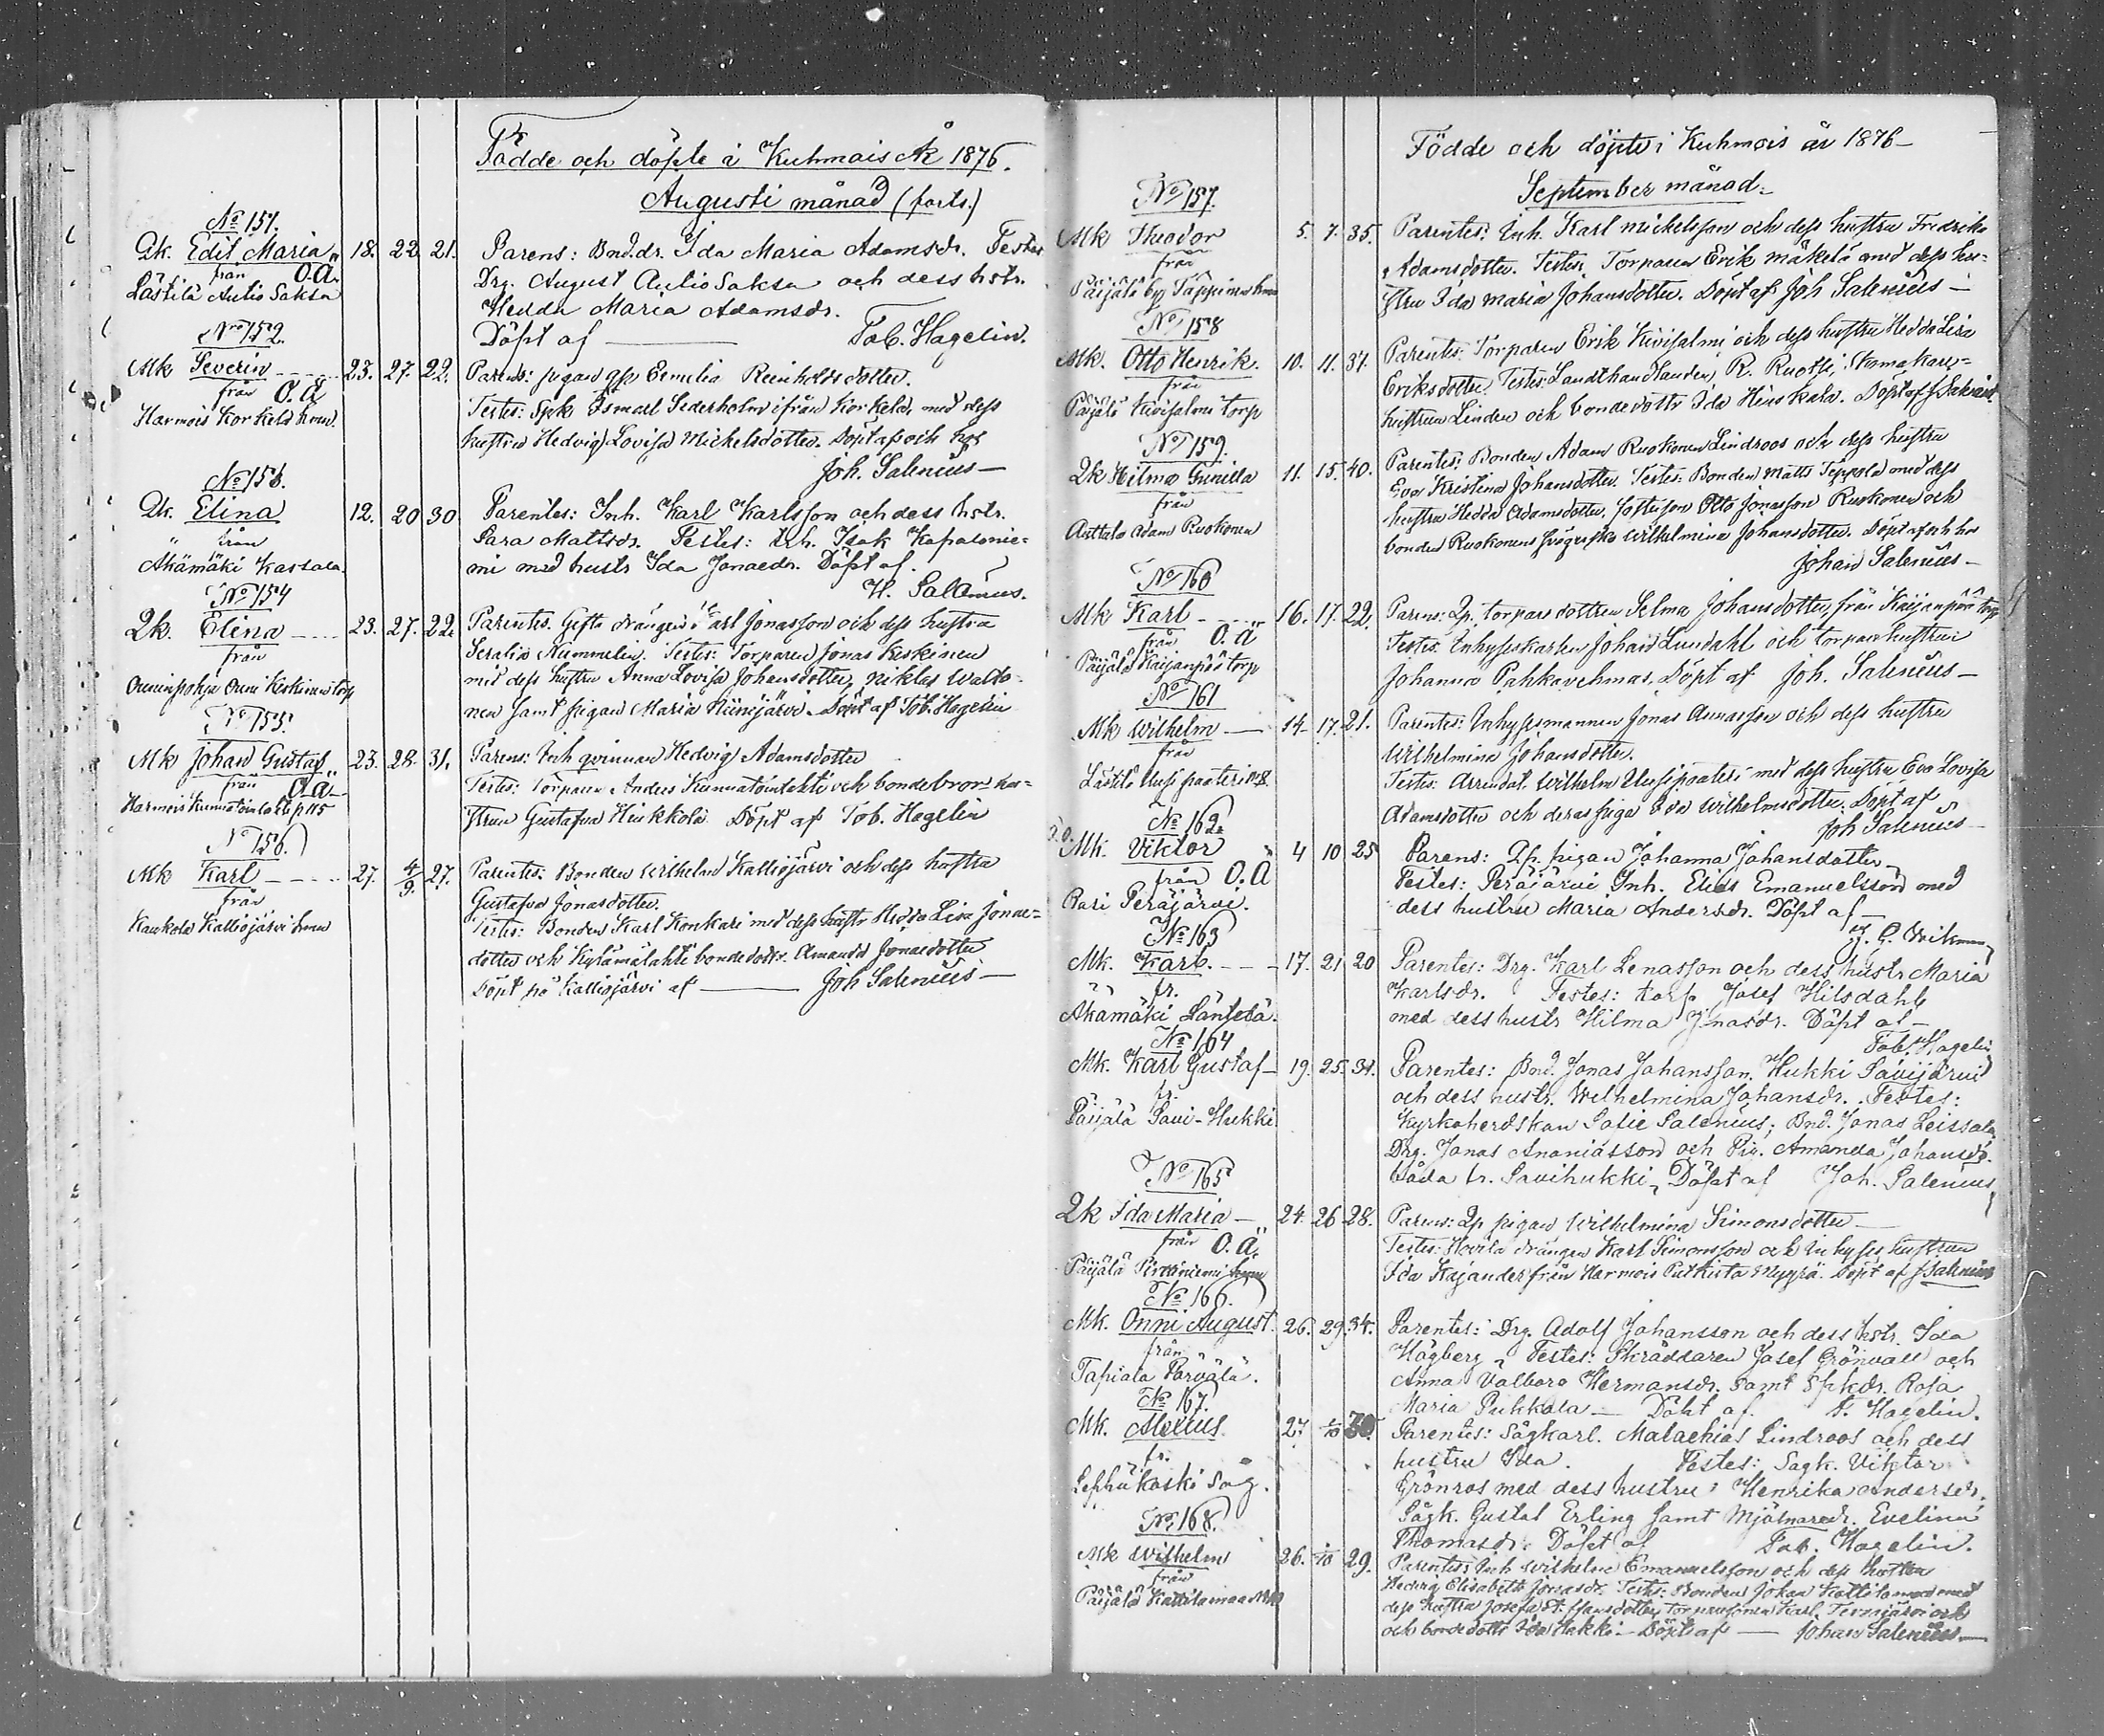 Födde och döpte i Kuhmois År 1876.
Augusti månad (forts.)
No 151.
Qk. Edit Maria 18. 22. 21. Parens: Bnd.dr. Ida Maria Adamsdr. Testes
från O.Ä. Drg. August Aulio Saksa och dess hstr.
Lästilä Aulio Saksa Hedda Maria Adamsdr.
Döpt af — Tob. Hagelin.
No 152.
Mk Severin 23. 27. 22. Parens: pigan Emelia Reinholdsdotter.
från O.Ä Testes: Spk Ismael Sederholm ifrån Korkela med dess
Harmois Korkela hmn. hustru Hedvig Lovisa Mickelsdotter. Döpt af och hos
Joh. Salenius —
No 153.
Qk. Elina 12. 20 30 Parentes: Inh. Karl Karlsson och dess hstr.
från Sara Mattsdr. Testes: Inh. Isak Kapasonie-
Äkämäki Kassala. mi med hustr Ida Jonaedr. Döpt af.
H. Salenius.
No 154
Qk. Elina 23. 27. 22. Parentes. Gifta drängen Karl Jonasson och dess hustru
från Seralia Kummelin. Testes: Torparen Jonas Keskinen
Onninpohja Onni Keskinen torp med dess hustru Anna Lovisa Johansdotter, Niklas Walto-
nen samt pigan Maria Niinijärvi. Döpt af Tob. Hagelin
No 155.
Mk Johan Gustaf 23. 28. 31. Parens: Inh qvinnan Hedvig Adamsdotter
från O.Ä. Testes: Torparen Anders Kunnatoinlahti och bondebrors hu-
Harmois Kunnatoinlahti p 115 strun Gustafva Hinkkola Döpt af Tob. Hagelin
No 156.
Mk Karl 27. 4/9. 27. Parentes. Bonden Wilhelm Kalliojärvi och dess hustru
från Gustafva Jonasdotter.
Kaukola Kalliojärvi hmn Testes: Bonden Karl Konkari med dess hustr Hedda Lisa Jonae-
dotter och Kylämälahti bondedottr. Amanda Jonaedotter
Döpt på Kalliojärvi af — Joh Salenius —
Födde och döpte i Kuhmois år 1876 —
September månad.
No 157.
Mk Theodor 5. 7. 35. Parentes: Inh. Karl Mickelsson och dess hustru Fredrika
från Adamsdotter. Testes: Torparen Erik Mäkelä med dess hu-
Päijälä by Tappinen hmn stru Ida Maria Johansdotter. Döpt af Joh Salenius —
No 158
Mk. Otto Henrik. 10. 11. 37. Parentes: Torparen Erik Kivisalmi och dess hustru Hedda Lisa
från Eriksdotter. Testes: Landthandlanden R. Ruotsi, Skomakare-
Päijälä Kivisalmi torp hustrun Linden och bondedottr Ida Hinskala. Döpt af J Salenius.
No 159.
Qk Hilma Gunilla 11. 15. 40. Parentes: Bonden Adam Ruokonen Lindroos och dess hustru
från Eva Kristina Johansdotter. Testes: Bonden Matts Seppälä med dess
Anttala Adam Ruokonen hustru Hedda Adamsdotter, Otto Jonasson Ruokonen och
bonden Ruokonens svägerska Wilhelmina Johansdotter. Döpt af och hos
Johan Salenius —
No 160
Mk Karl 16. 17. 22. Parens: Qp. torparedottren Selma Johansdotter från Käijänpää torp
från O.Ä Testes: Inhyseskarlen Johan Lundahl och torparehustrun
Päijälä Käijänpää torp Johanna Pahkavehmas. Döpt af Joh. Salenius —
No 161
Mk Wilhelm — 14. 17. 21. Parentes: Inhysesmannen Jonas Annasson och dess hustru
från Wilhelmina Johansdotter.
Lästilä Uusipaateri No 8. Testes: Arrendat. Wilhelm Uusipaateri med dess hustru Eva Lovisa
Adamsdotter och deras piga Eva Wilhelmsdotter. Döpt af
Joh Salenius —
No 162.
Mk. Viktor 4 10 25 Parens: Qp. pigan Johanna Johansdotter —
från O.Ä Testes: Peräjärvi Inh. Elias Emanuelsson med
Puri Peräjärvi. dess hustru Maria Andersdr. Döpt af —
J. G. Wikman
No 163
Mk. Karl. 17. 21 20 Parentes: Drg. Karl Lenasson och dess hustr Maria
fr. Karlsdr. Testes: Torp. Josef Hilsdahl
Äkämäki Läntelä. med dess hustr Hilma Jonasdr. Döpt af —
Tob. Hagelin
No 164
Mk. Karl Gustaf — 19. 25. 31. Parentes: Bnd. Jonas Johansson Hukki Savijärvi
fr. och dess hustr. Wilhelmina Johansdr. Testes:
Päijälä Savi-Hukki Kyrkoherdskan Sofie Salenius; Bnd. Jonas Leissala,
Drg. Jonas Ananiasson och Pig. Amanda Johansdr.
båda fr. Savihukki, Döpt af Joh. Salenius
No 165
Qk Ida Maria — 24. 26 28. Parens: Qp pigan Wilhelmina Simonsdotter —
från O.Ä. Testes: Havila drängen Karl Simonsson och Inhyses hustrun
Päijälä Pirttiniemi hmn Ida Kajander från Harmois Putkista Myyrä. Döpt af J Salenius
No 166.
Mk. Onni August. 26. 29. 34. Parentes: Drg. Adolf Johansson och dess hstr. Ida
från Högberg, Testes: Skräddaren Josef Grönvall och
Tapiala Pärvälä. Anna Valbora Hermansdr. samt Spkdr. Rosa
Maria Pukkala — Döpt af. T. Hagelin.
No 167.
Mk. Alexius 27. 1/10 30. Parentes: Sågkarl. Malachias Lindroos och dess
fr. hustru Ida. Testes: Sagk. Viktor
såg. Grönros med dess hustru Henrika Andersdr.
Sågk. Gustaf Erling samt Mjölnaredr. Evelina
Thomasdr. Döpt af Tob. Hagelin.
No 168.
Mk Wilhelm 26. 1/10 29. Parentes: Inh Wilhelm Emanuelsson och dess hustru
från Hedvig Elisabeth Jonasdr. Testes: Bonden Johan Kattilamaa med
Päijälä Kattilamaa dess hustru Josefa Hansdotter, torparesonen Karl Tervajärvi och
och bondedottr Ida Hakki — Döpt af — Johan Salenius —